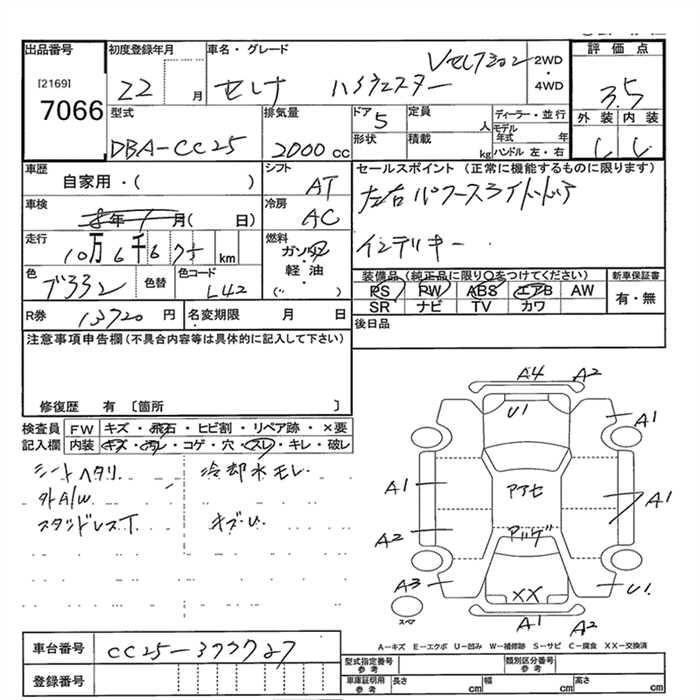 出品番号
[2169]
7066
初度登録年月
22 月
車名・グレード
セレナ ハイウェスター Vセレクション
2WD
・
4WD
評価点
3.5
外装 内装
型式
DBA-CC25
排気量
2000 cc
ドア
5
形状
定員
人
積載
kg
ディーラー・並行
モデル年式 年
ハンドル 左・右
車歴
自家用・( )
シフト
AT
車検
8年 1月( 日)
冷房
AC
走行
10万6千675 km
燃料
ガソリン
軽油
( )
色
色替
色コード
L42
R券
13720 円
名変期限 月 日
セールスポイント(正常に機能するものに限ります)
左右パワースライドドア
インテリキー
装備品(純正品に限り○をつけてください)
PS PW ABS エアB AW
SR ナビ TV カワ
新車保証書
有・無
後日品
注意事項申告欄(不具合内容等は具体的に記入して下さい)
修復歴 有〔箇所 〕
検査員記入欄
FW キズ・飛石・ヒビ割・リペア跡・×要
内装 キズ・汚れ・コゲ・穴・スレ・キレ・破レ
シートヘタリ 冷却水モレ
外A/W
スタッドレスT キズU
A4 A2
U1
A1
A1
A1
A2
A3
U1
XX
A1 A2
スペア
A-キズ E-エクボ U-凹み W-補修跡 S-サビ C-腐食 XX-交換済
車台番号
CC25-373727
登録番号
型式指定番号
参考
類別区分番号
参考
車庫証明用
参考
長さ cm
幅 cm
高さ cm